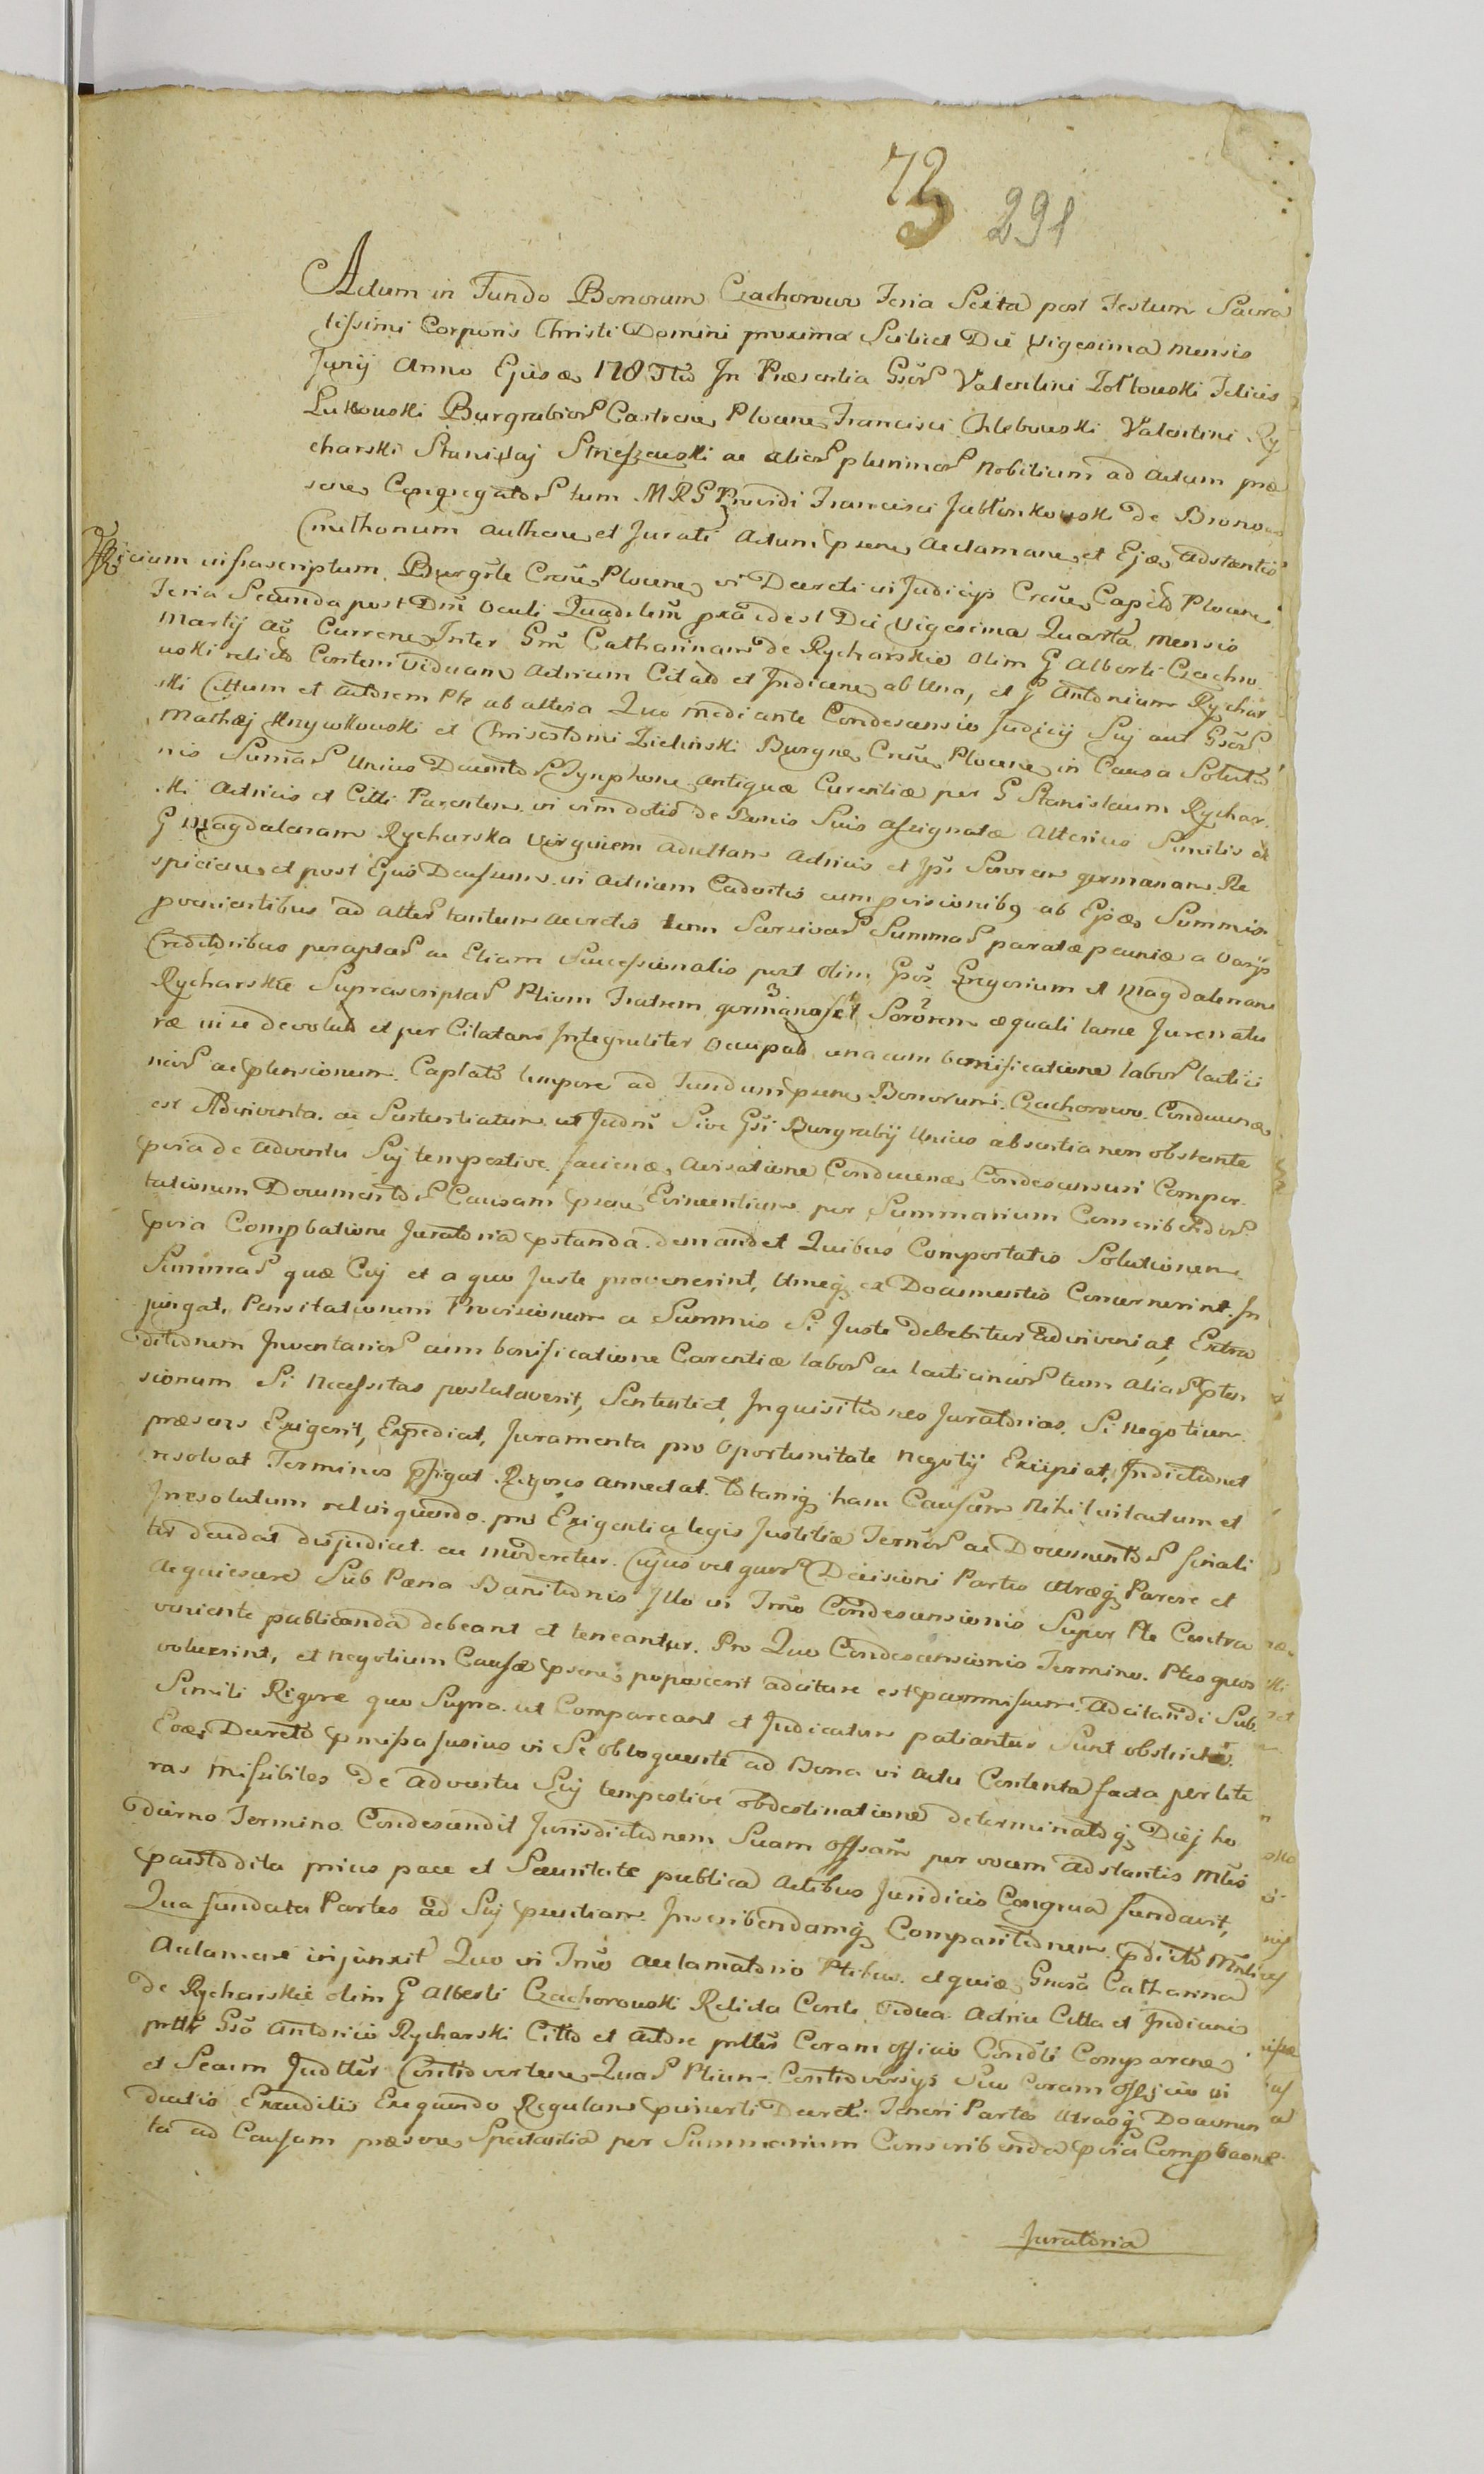 73 291
Actum in Fundo Bonorum Czachorowo Feria Sexta post Festum Sacra
tissimi Corporis Christi Domini proxima Scilicet Die Vigesima mensis
Junij Anno Ejusd 178 In Præsentia Gsor Valentini Żołtowski Felicis
Lukowski Burgrabior Castren Plocen Francisci Chlebowski Valentini Ry
charski Stanislaj Strzeszewski ac alior plurimor Nobilium ad Actum præ
sens Congregator tum MRS Providi Francisci Jabłonkowski de Bronowo
Cmethonum authen et Jurati Actum psens Acclaman et Ejsd Adstantis
infrascriptum Burgrle Cren Plocen vi Decreti in Judicijs Cren Capit Plocen
Feria Secunda post Dm Oculi Quadslm pxa idest Die Vigesima Quarta mensis
Martij ao Curren Inter Gm Catharinam de Rycharskie olim G Alberti Czacho
wski relicto Conten Viduam Actricem Citat et Judicen ab Una, et G Antonium Rychar
ski Cittum et Actorem Pte ab altera Quo mediante Condescensio Judicij Suj aut Gsor
Mathæj Krzywkowski et Chrisostomi Zieliński Burgræ Cren Plocen in Causa Soluto
nis Summar Unius Ducentor Tynphon Antiquæ Curentiæ per G Stanislaum Rychar
ski Actricis et Citti Parentem vi vim dotis de Bonis Suis assignatæ Alterius Similis ad
G Magdalenam Rycharska Virginem Adultam Actricis et Jps Sororem germanam Re
spicien et post Ejus Decessum in Actricem Cadentis cum pvisionibq ab Ejsd Summis
provenientibus ad Alter tantum accretis tum Summar paratæ pecuniæ a Varijs
Creditoribus perceptar ac Etiam Successionalis post olim Gos Gregorium et Magdalenam
Rycharskie Suprascriptar Ptium Fratrem germanos et Sororem æquali lance Jure natu
ræ in se devolut et per Citatam Integraliter Occupat una cum bonificatione labor lactici
nior ac ptensionum Captato tempore ad Fundum psen Bonorum Czachorowo Conducen
est Adinventa ac Sententiatum ut Judm Sive Gsi Burgrabij Unius absentia non obstante
pvia de adventu Suj tempestive facien avisatione Conducen Condescensuri Compor
tationum Documentor Causam psen Evincentium per Summarium Conscribendor
pvia Compbatione Juratoria pstanda demandet Quibus Comportatis Solutionem
Summar quæ Cuj et a quo Juste provenerint, Utinq ex Documentis Concernerint In
jungat, Pensitationum Provisionum a Summis Si Juste debebitur adinveniat, Extra
ditionum Inventarior cum bonificatione Carentiæ labor ac lacticinior tum Aliar pten
sionum Si Necessitas postulaverit, Sententiet Inquisitiones Juratorias Si negotium
præsens Exigerit, Expediat, Juramenta pro Oportunitate negotij Excipiat, Indictionet
resolvat Terminos pfigat Rigores annectat totamq hanc Causam Nihil intactum et
Irresolutum relinquendo pro Exigentia legis Justitiæ Termor ac Documentor finali
ter decidat disjudicet ac moderetur Cujus vel quor Decisioni Partes utræq Parere et
acquiescere Sub Pæna Banitionis Illo in Tmo Condescensionis Super Pte Contra
veniente publicanda debeant et teneantur. Pro Quo Condescensionis Termino Ptes quos
voluerint, et negotium Causæ psens poposcerit adcitare est pmissum Adcitandi Sub
Simili Rigore quo Supra ut Compareant et Judicatum patiantur Sunt obstricti
Eoq Decreto pmissa fusius in Se obloquente ad Bona in Actu Contenta facta per lite
ras Missibiles De adventu Suj tempestive obdestinatione determinatoq Diej ho
dierno Termino Condescendit Jurisdictionem Suam Offsam per vocem Adstantis Mtis
pcustodita prius pace et Securitate publica Actibus Juridicis Congrua fundavit,
Qua fundata Partes ad Suj psentiam Inscribendamq Comparitionem pdicto Mnli
Aclamare injunxit Quo in Tmo Acclamatorio Ptibus utquiæ Gnosa Catharina
de Rycharskie olim G Alberti Czachorowski Relicta Conts Vidua Actrice Citta et Judicen
prttr Gso Antonio Rycharski Citto et Actore prtter Coram Officio Condti Comparen
et Secum Judtter Controverten Quar Ptium Controversijs Suo Coram Officio in
ductis Exauditis Exequendo Regulam pinserti Decreti Teneri Partes Utrasq Documen
ta ad Causam præsen Spectantia per Summarium Conscribenda pvia Compbaone
Juratoria